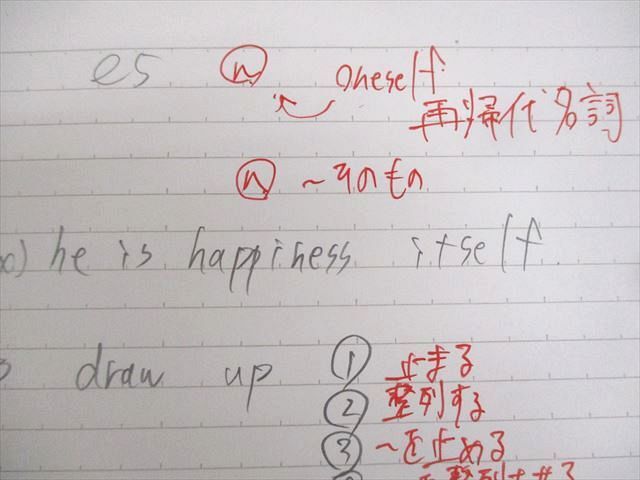 es ⓝ oneself
再帰代名詞
ⓝ ~そのもの
he is happiness itself.
draw up ① 止まる
② 整列する
③ ~を止める